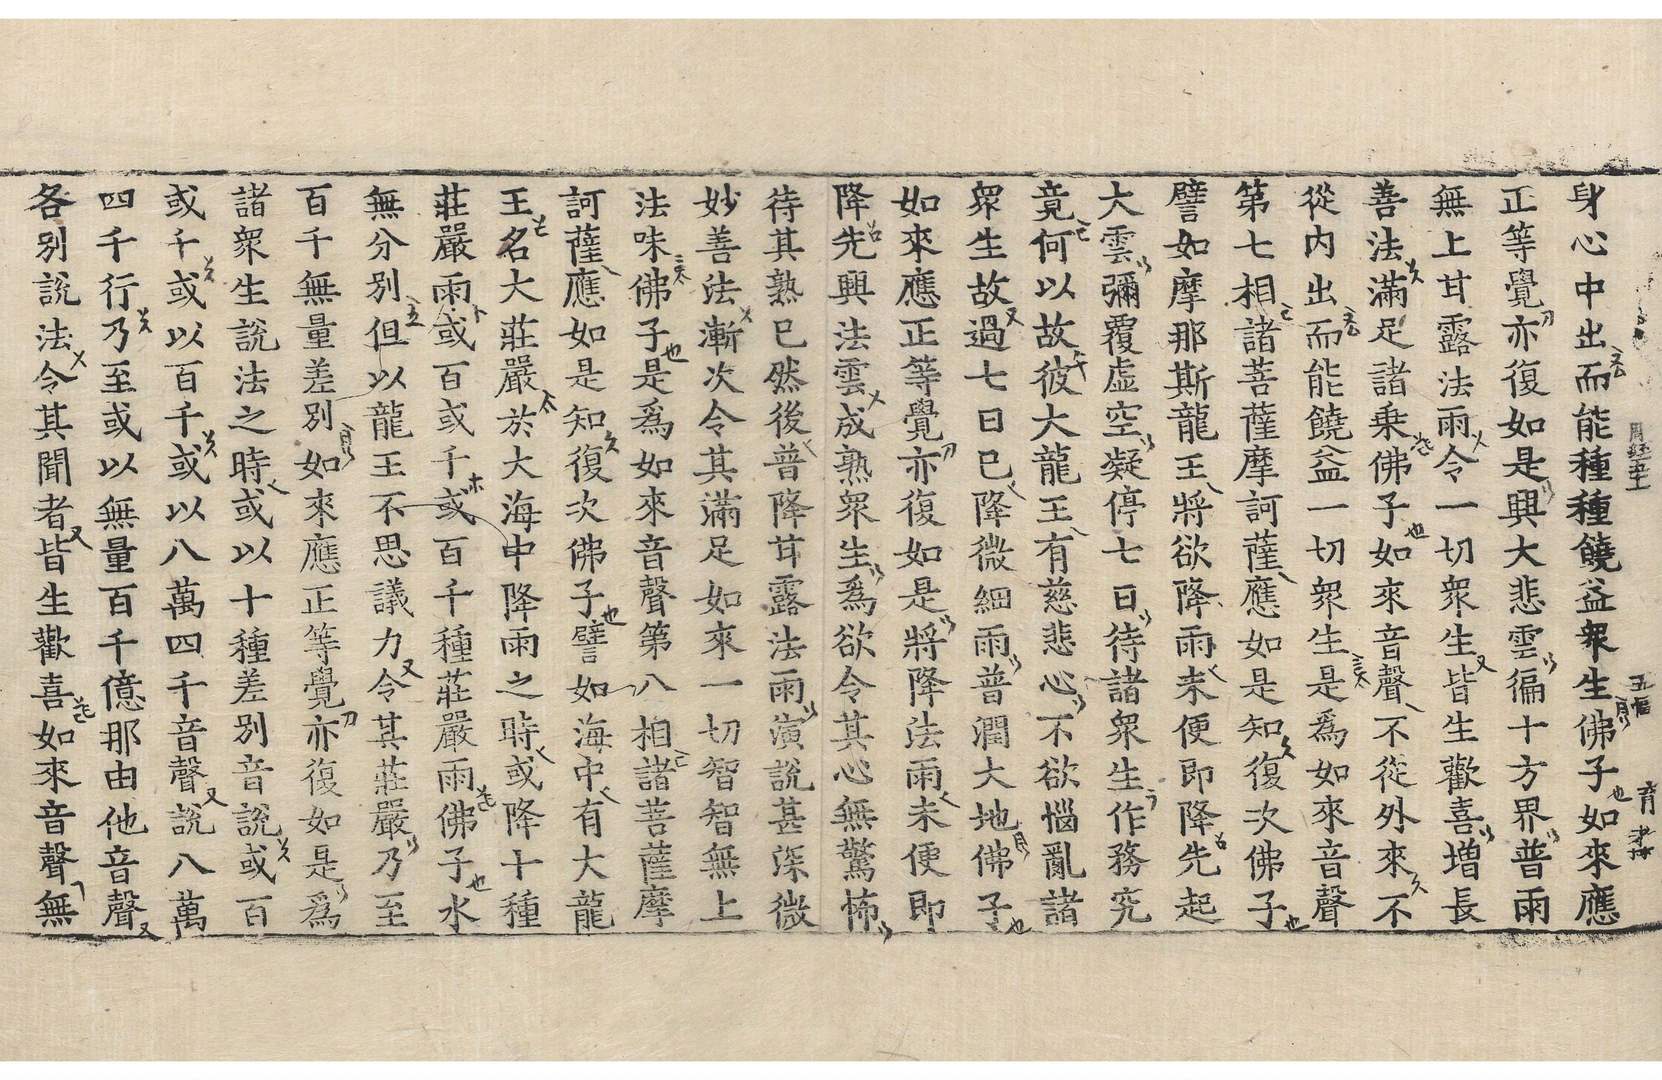 身心中出而能種種饒益衆生佛子如來應
正等覺亦復如是興大悲雲徧十方界普雨
無上甘露法雨令一切衆生皆生歡喜增長
善法滿足諸乘佛子如來音聲不從外來不
從內出而能饒益一切衆生是爲如來音聲
第七相諸菩薩摩訶薩應如是知復次佛子
譬如摩那斯龍王將欲降雨未便即降先起
大雲彌覆虛空凝停七日待諸衆生作務究
竟何以故彼大龍王有慈悲心不欲惱亂諸
衆生故過七日已降微細雨普潤大地佛子
如來應正等覺亦復如是將降法雨未便即
降先興法雲成熟衆生爲欲令其心無驚怖
待其熟已然後普降甘露法雨演說甚深微
妙善法漸次令其滿足如來一切智智無上
法味佛子是爲如來音聲第八相諸菩薩摩
訶薩應如是知復次佛子譬如海中有大龍
王名大莊嚴於大海中降雨之時或降十種
莊嚴雨或百或千或百千種莊嚴雨佛子水
無分別但以龍王不思議力令其莊嚴乃至
百千無量差別如來應正等覺亦復如是爲
諸衆生說法之時或以十種差別音說或百
或千或以百千或以八萬四千音聲說八萬
四千行乃至或以無量百千億那由他音聲
各別說法令其聞者皆生歡喜如來音聲無